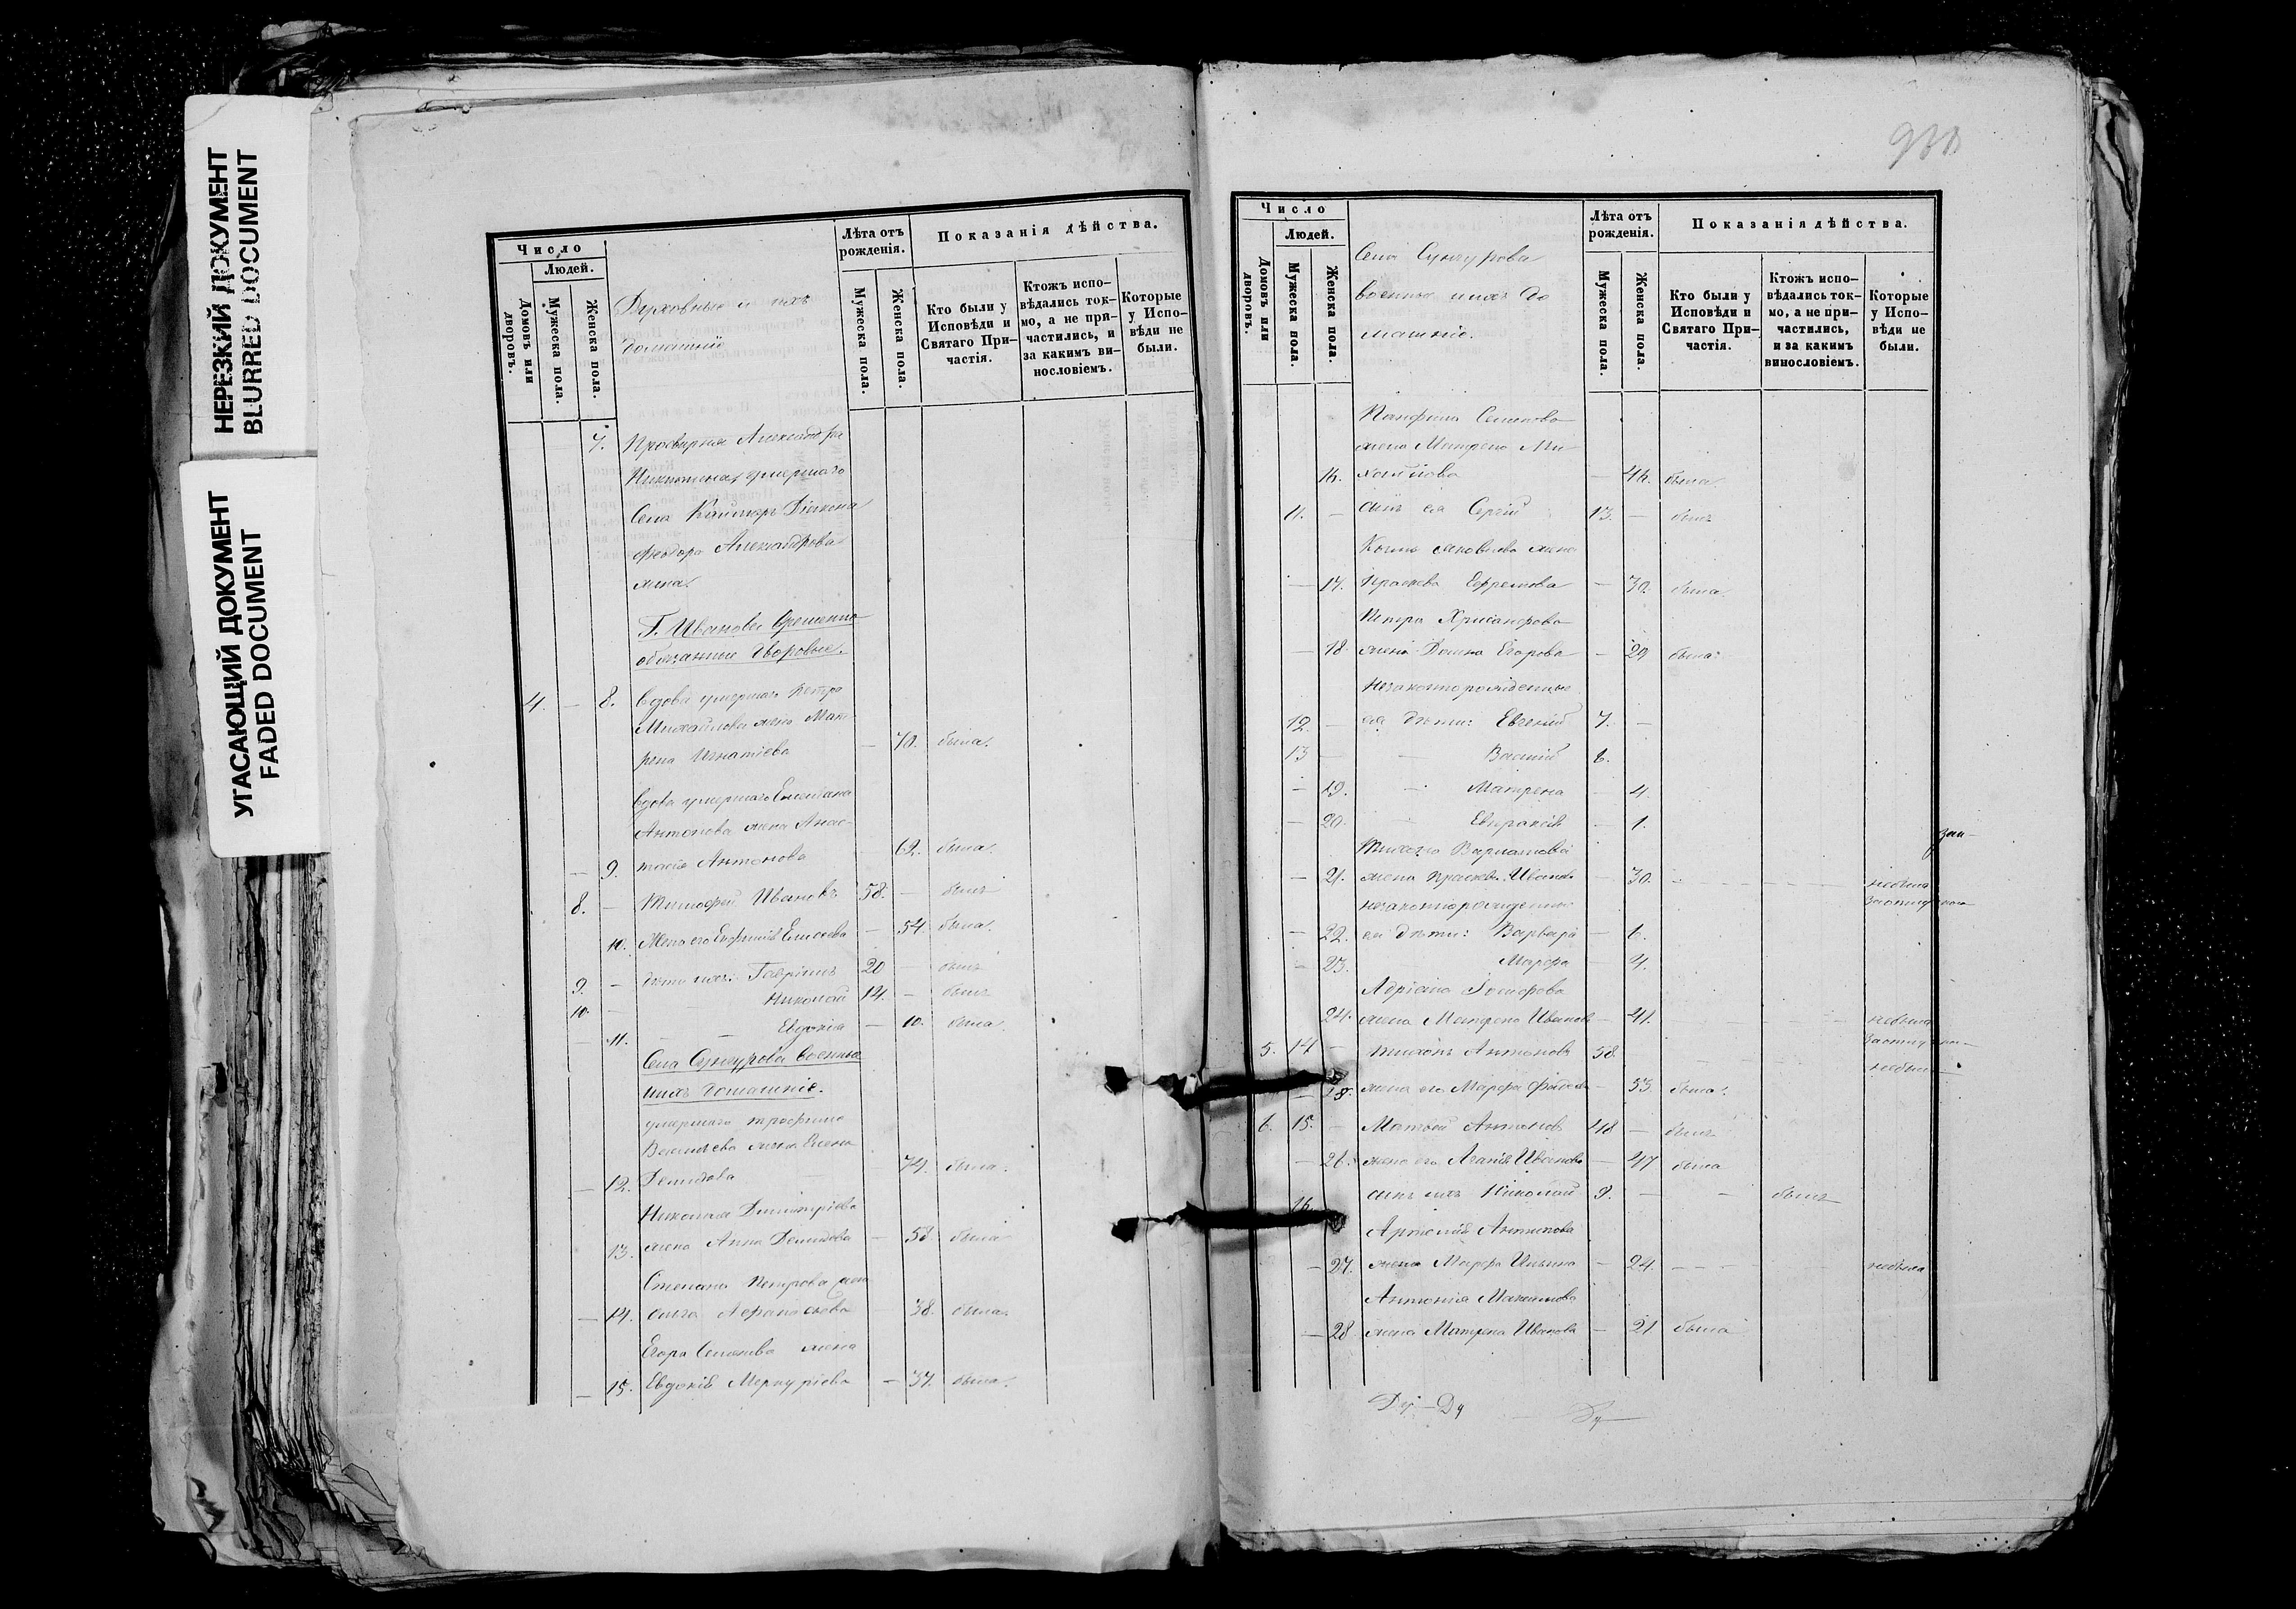 НЕРЕЗКИЙ ДОКУМЕНТ
BLURRED DOCUMENT
УГАСАЮЩИЙ ДОКУМЕНТ
FADED DOCUMENT
Число
Людей.
Домовъ или дворовъ.
Мужеска пола.
Женска пола.
Духовные и ихъ
домашніе
Лѣта отъ рожденія.
Мужеска пола.
Женска пола.
Показанія дѣйства.
Кто были у Исповѣди и Святаго При-частія.
Ктожъ испо-вѣдались ток-мо, а не при-частились, и за какимъ ви-нословіемъ.
Которые у Испо-вѣди не были.
7. Просвирня Александра
Никитина, умершаго
Села Діакона
Феодора Александрова
жена
Г. Иванова Временно
обязанные Дворовые.
4. — 8. Вдова умершаго Петра
Михайлова жена Мат-
рена Игнатіева — 70. была.
Вдова умершаго
Антонова жена Анас-
— 9. тасія Антонова 62. была.
8. — Тимофей Ивановъ 58. — былъ
10. Жена его Елисеева — 54. была.
9. — дѣти ихъ: Гавріилъ 20 — былъ
10. — Николай 14. — былъ
— 11. — Евдокія — 10. была.
Села Сунгурова Военные
ихъ домашніе.
умершаго Трофима
Васильева жена Елена
— 12. Демидова 74. была.
Николая Димитріева
13. жена Анна Демидова — 58 была
Степана Петрова жена
— 14. Ольга Афанасьева 38. была.
Егора Семенова жена
— 15. Евдокія Меркуріева — 37. была.
930
Число
Людей.
Домовъ или дворовъ.
Мужеска пола.
Женска пола.
Села Сунгурова
военные ихъ до
машніе.
Лѣта отъ рожденія.
Мужеска пола.
Женска пола.
Показанія дѣйства.
Кто были у Исповѣди и Святаго При-частія.
Ктожъ испо-вѣдались ток-мо, а не при-частились, и за какимъ винословіемъ.
Которые у Испо-вѣди не были.
Панфила Семенова
жена Матрена Ми-
16. хайлова — 46. была.
11. — сынъ ея Сергій 13. — былъ
Яковлева жена
— 17. Прасковья Ефремова — 30. была.
Петра Хрисанфова
— 18. жена Домна Егорова — 29 была.
Незаконнорожденные
12. — ея дѣти: Евгеній 7. —
13 — — Василій 6.
— 19. — Матрена — 4.
— 20. — Евпраксія — 1.
Варламова
— 21. жена Иванова — 30. — небыла
незаконнорожденные
— 22. ея дѣти: Варвара — 6.
— 23. Марфа — 4.
Адріана
24. жена Матрена Иванова — 41. небыла
5. 14 — Тихонъ Антоновъ 58. небылъ
— 25. жена его Марфа — 53. была.
6. 15. — Матвей Антоновъ 48 — былъ
— 26. жена его Агафія Иванова — 47 была
16. сынъ ихъ Николай 9. — — былъ
Артемія Антипова
— 27. жена Марфа Ильина — 24. — — — небыла
Антонія Максимова
— 28. жена Матрена Иванова — 21 была